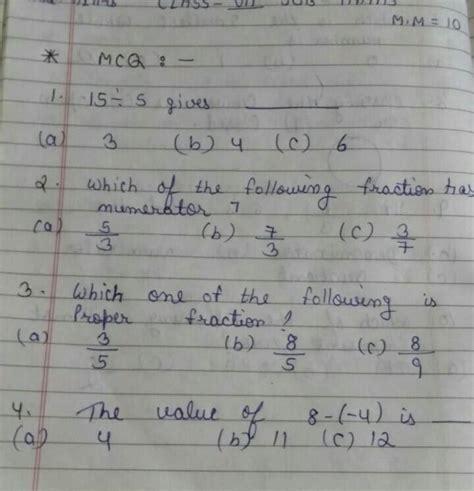 CLASS - VII SUB Maths
M.M = 10
* MCQ : -
1. 15 ÷ 5 gives ______
(a) 3 (b) 4 (c) 6
2. Which of the following fraction has
numerator 7
(a) 5/3 (b) 7/3 (c) 3/7
3. Which one of the following is
Proper fraction ?
(a) 3/5 (b) 8/5 (c) 8/9
4. The value of 8-(-4) is ___
(a) 4 (b) 11 (c) 12